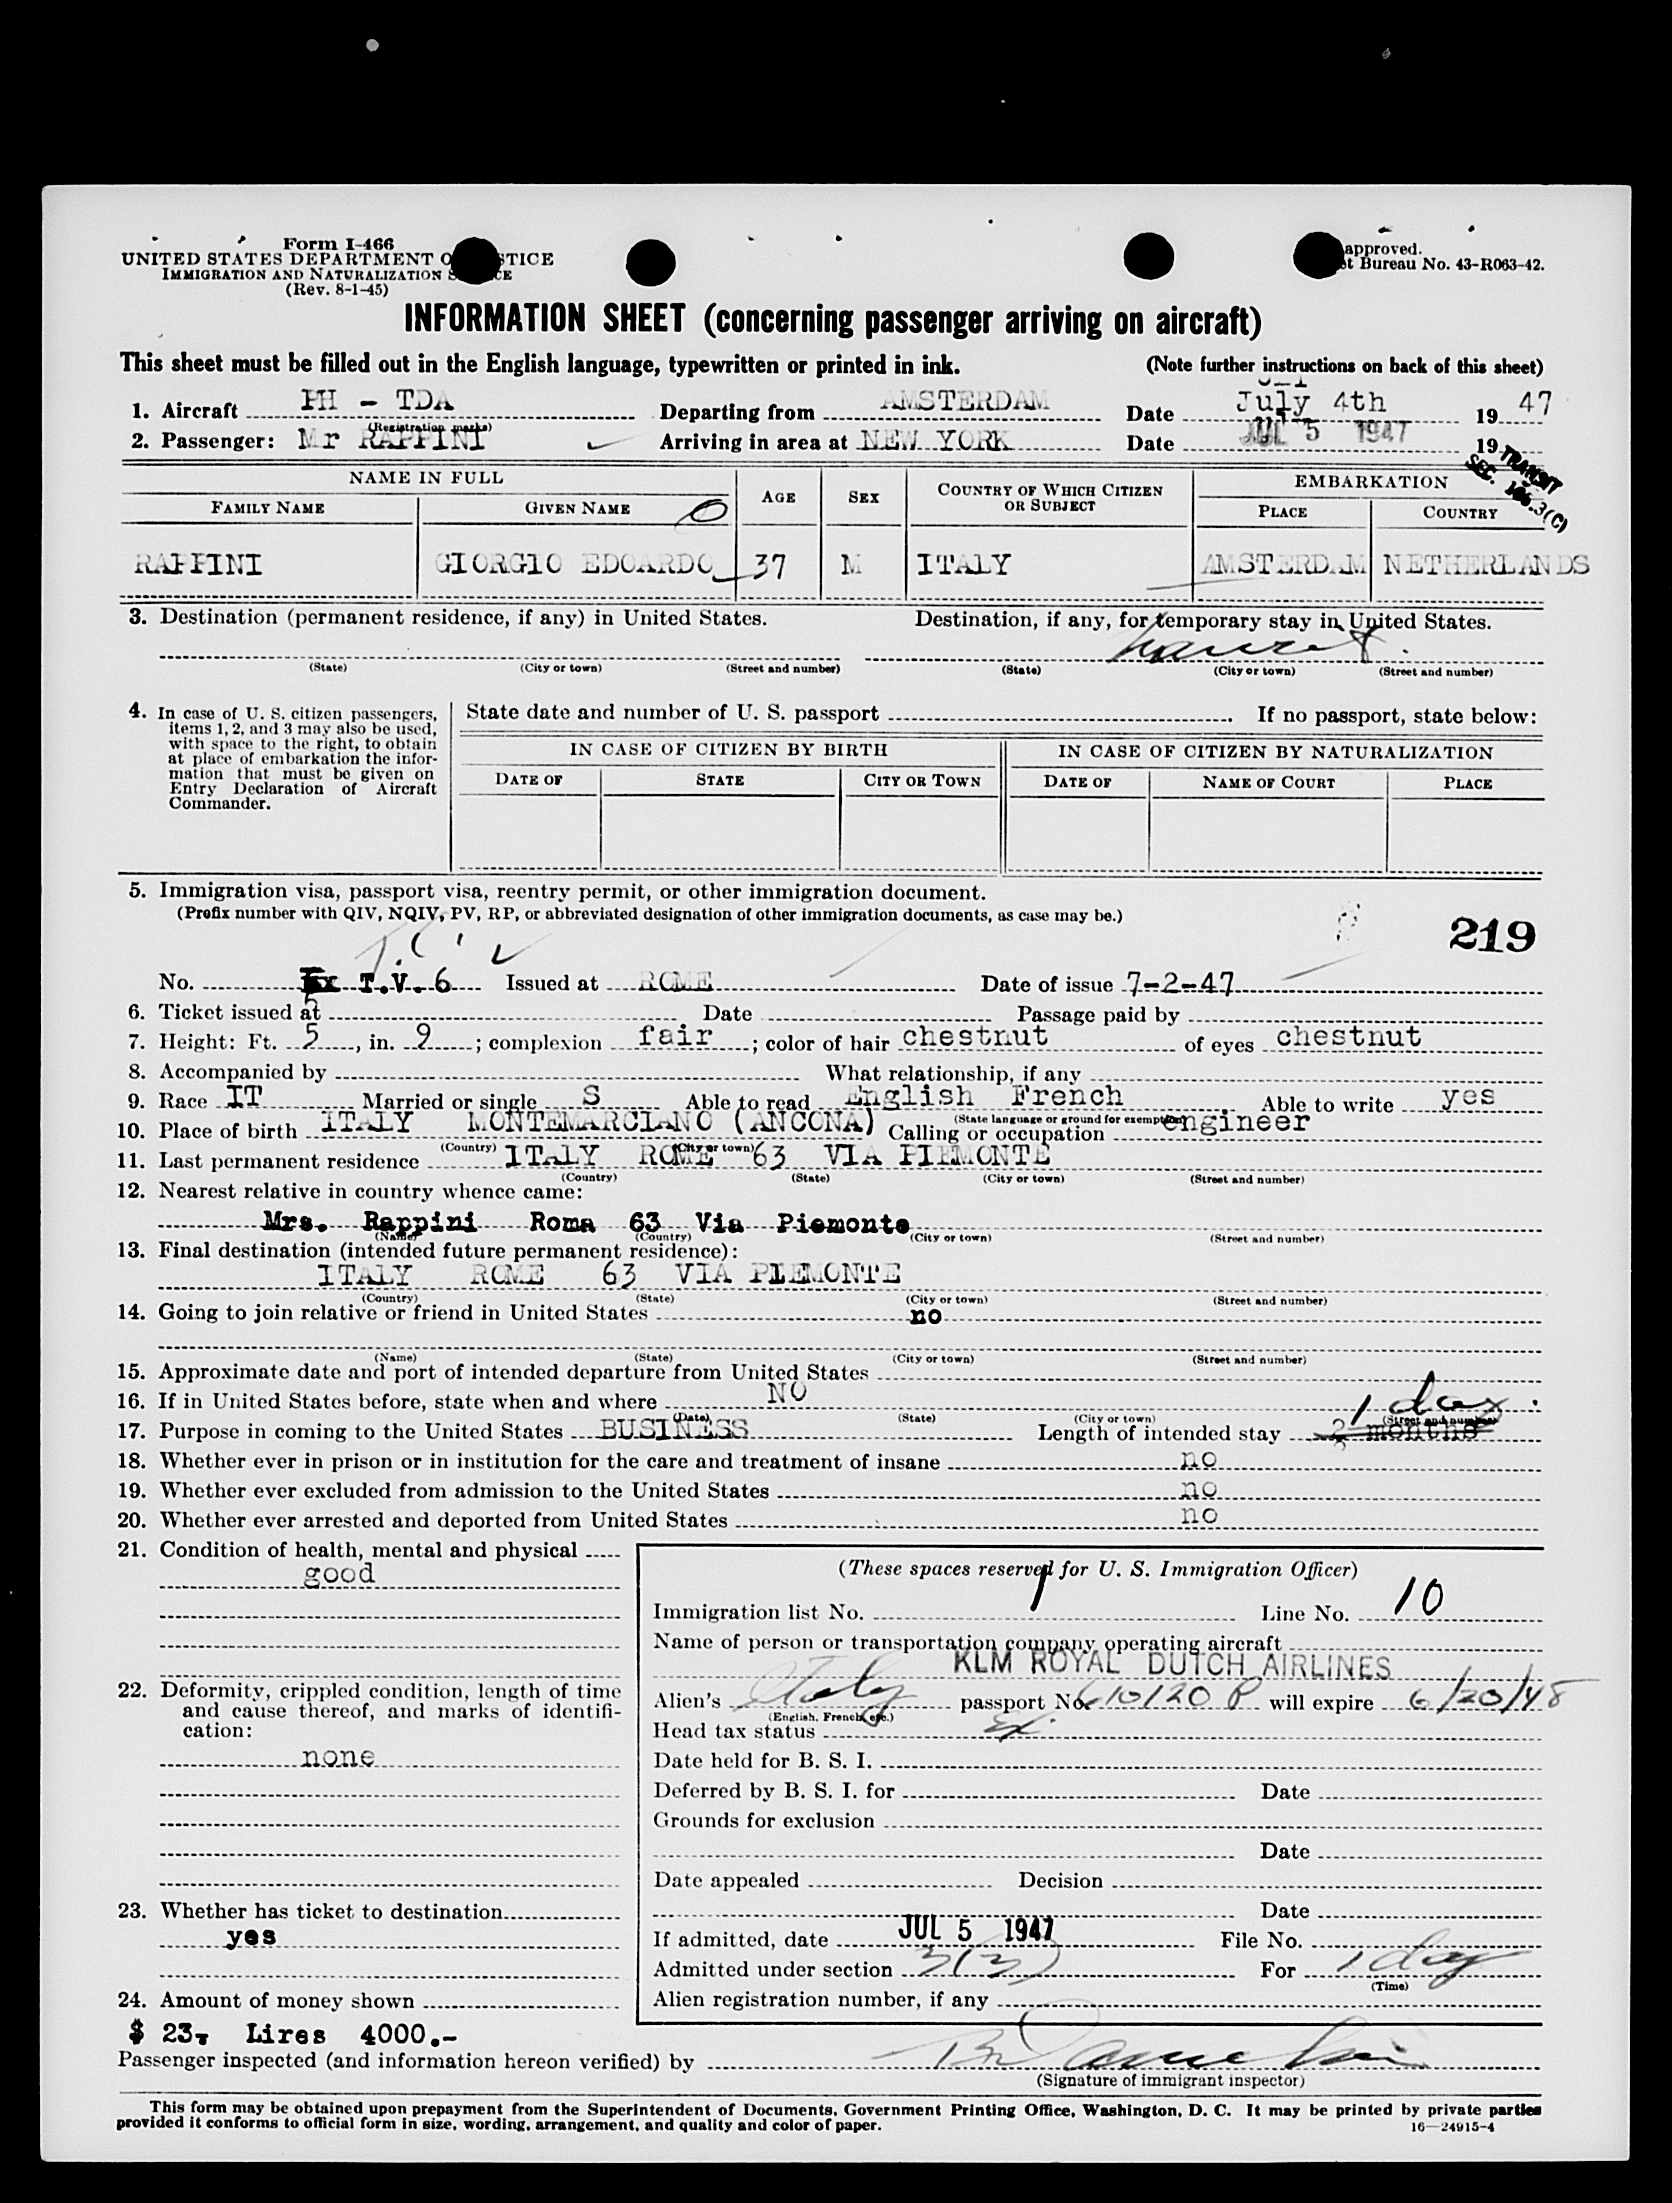 Form I-466
UNITED STATES DEPARTMENT O STICE
IMMIGRATION AND NATURALIZATION S CE
(Rev. 8-1-45)
approved.
t Bureau No. 43-R063-42.
INFORMATION SHEET (concerning passenger arriving on aircraft)
This sheet must be filled out in the English language, typewritten or printed in ink. (Note further instructions on back of this sheet)
1. Aircraft PH - TDA Departing from AMSTERDAM Date July 4th 19 47
(Registration marks)
2. Passenger: Mr RAPPINI Arriving in area at NEW YORK Date JUL 5 1947 19
TRANSIT
SEC. 166.3(C)
NAME IN FULL AGE SEX COUNTRY OF WHICH CITIZEN OR SUBJECT EMBARKATION
FAMILY NAME GIVEN NAME PLACE COUNTRY
RAPPINI GIORGIO EDOARDO 37 M ITALY AMSTERDAM NETHERLANDS
3. Destination (permanent residence, if any) in United States. Destination, if any, for temporary stay in United States.
transit.
(State) (City or town) (Street and number) (State) (City or town) (Street and number)
4. In case of U. S. citizen passengers,
items 1, 2, and 3 may also be used,
with space to the right, to obtain
at place of embarkation the infor-
mation that must be given on
Entry Declaration of Aircraft
Commander.
State date and number of U. S. passport . If no passport, state below:
IN CASE OF CITIZEN BY BIRTH IN CASE OF CITIZEN BY NATURALIZATION
DATE OF STATE CITY OR TOWN DATE OF NAME OF COURT PLACE
5. Immigration visa, passport visa, reentry permit, or other immigration document.
(Prefix number with QIV, NQIV, PV, RP, or abbreviated designation of other immigration documents, as case may be.)
219
No. T.V. 6 Issued at ROME Date of issue 7-2-47
6. Ticket issued at Date Passage paid by
7. Height: Ft. 5, in. 9; complexion fair; color of hair chestnut of eyes chestnut
8. Accompanied by What relationship, if any
9. Race IT Married or single S Able to read English French Able to write yes
(State language or ground for exemption)
10. Place of birth ITALY MONTEMARCIANO (ANCONA) Calling or occupation engineer
(Country) (City or town)
11. Last permanent residence ITALY ROME 63 VIA PIEMONTE
(Country) (State) (City or town) (Street and number)
12. Nearest relative in country whence came:
Mrs. Rappini Roma 63 Via Piemonte
(Name) (Country) (City or town) (Street and number)
13. Final destination (intended future permanent residence):
ITALY ROME 63 VIA PIEMONTE
(Country) (State) (City or town) (Street and number)
14. Going to join relative or friend in United States no
(Name) (State) (City or town) (Street and number)
15. Approximate date and port of intended departure from United States
16. If in United States before, state when and where NO
(Date) (State) (City or town) (Street and number)
1 day.
17. Purpose in coming to the United States BUSINESS Length of intended stay 2 months
18. Whether ever in prison or in institution for the care and treatment of insane no
19. Whether ever excluded from admission to the United States no
20. Whether ever arrested and deported from United States no
21. Condition of health, mental and physical
good
22. Deformity, crippled condition, length of time
and cause thereof, and marks of identifi-
cation:
none
23. Whether has ticket to destination
yes
24. Amount of money shown
$ 23, Lires 4000.-
(These spaces reserved for U. S. Immigration Officer)
Immigration list No. 1 Line No. 10
Name of person or transportation company operating aircraft
KLM ROYAL DUTCH AIRLINES
Alien's Italy passport No. 610120 P will expire 6/20/48
(English, French, etc.)
Head tax status Ex.
Date held for B. S. I.
Deferred by B. S. I. for Date
Grounds for exclusion
Date
Date appealed Decision
Date
If admitted, date JUL 5 1947 File No.
Admitted under section 3(3) For 1 day
(Time)
Alien registration number, if any
Passenger inspected (and information hereon verified) by
(Signature of immigrant inspector)
This form may be obtained upon prepayment from the Superintendent of Documents, Government Printing Office, Washington, D. C. It may be printed by private parties
provided it conforms to official form in size, wording, arrangement, and quality and color of paper.
16—24915-4